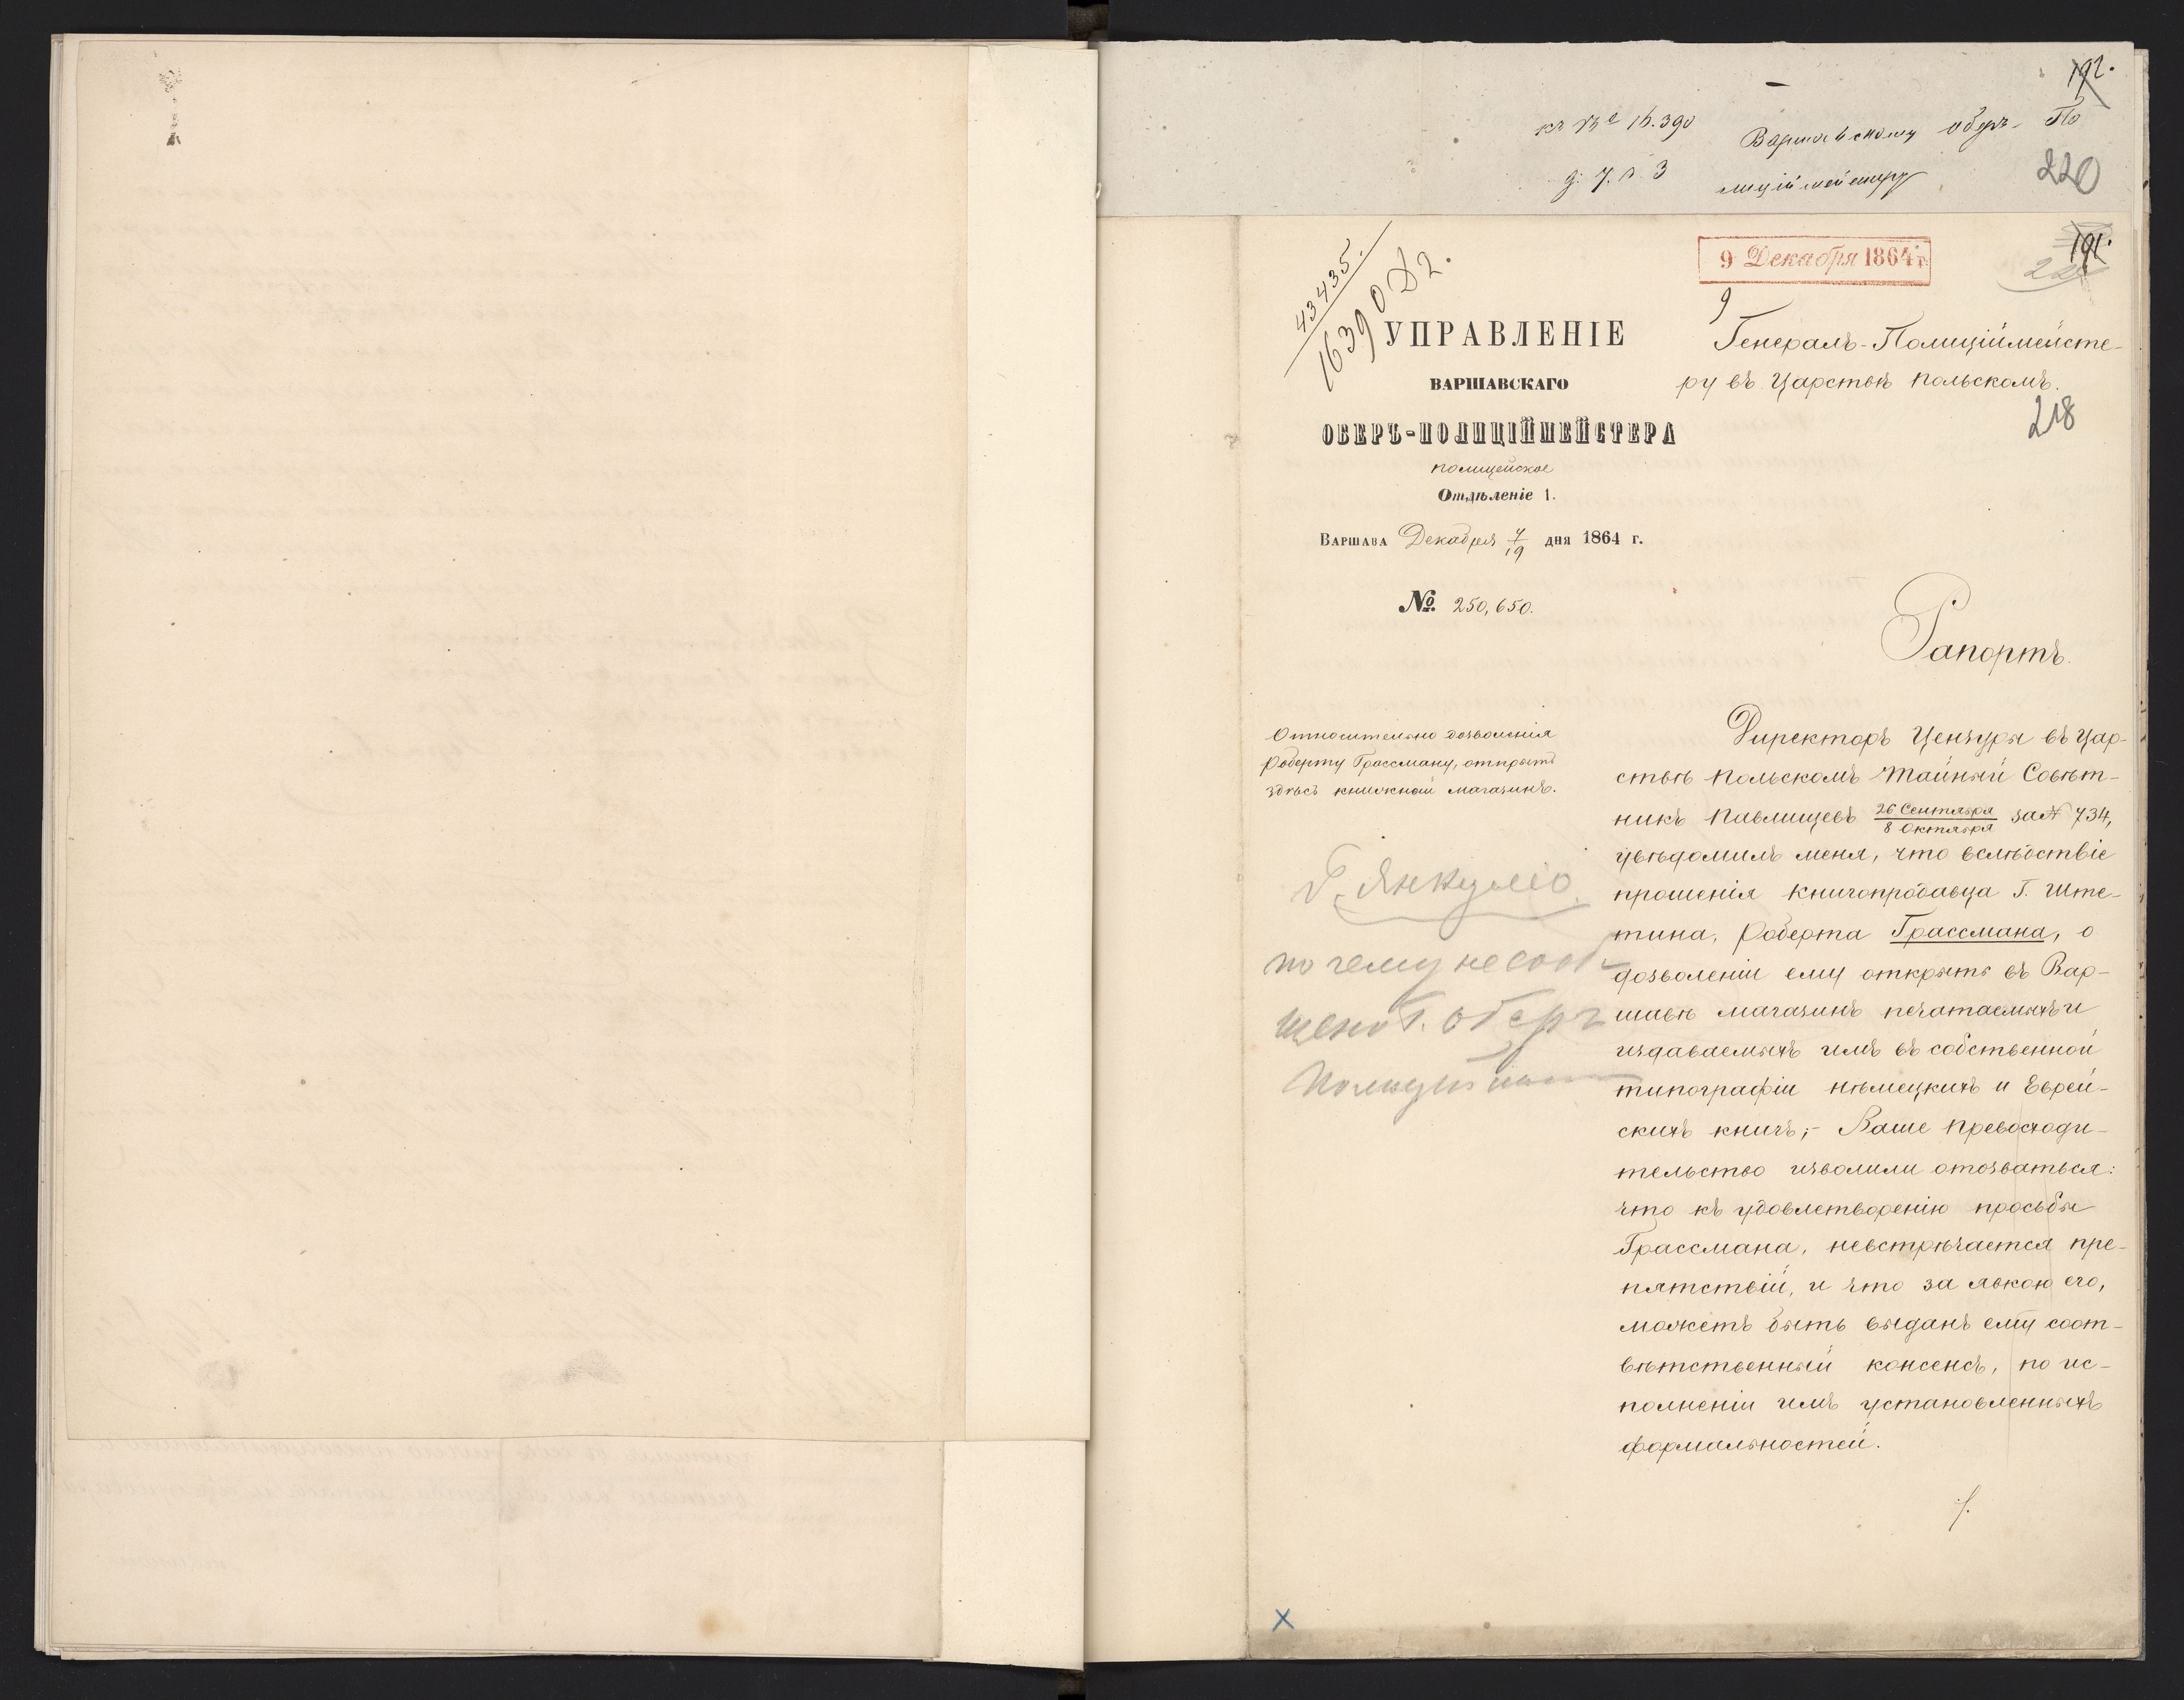 192.
къ № 16.390
Варшавскому Оберъ-По
лиціймейстеру
220
43435.
16390
9 Декабря 1864 г.
191.
УПРАВЛЕНІЕ
ВАРШАВСКАГО
ОБЕРЪ-ПОЛИЦІЙМЕЙСТЕРА
полицейское
Отдѣленіе 1.
Варшава Декабря 7/19 дня 1864 г.
№ 250,650.
Генералъ-Полиціймейсте-
ру въ Царствѣ Польскомъ.
218
Рапортъ.
Относительно дозволенія
Роберту Грассману, открыть
здѣсь книжный магазинъ.
Г. Янкуліо.
почему не сооб-
щено Г. Оберъ
Директоръ Цензуры въ Цар-
ствѣ Польскомъ Тайный Совѣт-
никъ Павлищевъ 26 Сентября/8 Октября за № 734,
увѣдомилъ меня, что вслѣдствіе
прошенія книгопродавца Г. Ште-
тина, Роберта Грассмана, о
дозволеніи ему открыть въ Вар-
шавѣ магазинъ печатаемыхъ и
издаваемыхъ имъ въ собственной
типографіи нѣмецкихъ и Еврей-
скихъ книгъ;- Ваше Превосходи-
тельство изволили отозваться:
что къ удовлетворенію просьбы
Грассмана, невстрѣчается пре-
пятствій, и что за явкою его,
можетъ быть выданъ ему соот-
вѣтственный консенсъ, по ис-
полненіи имъ установленныхъ
формальностей.
./.